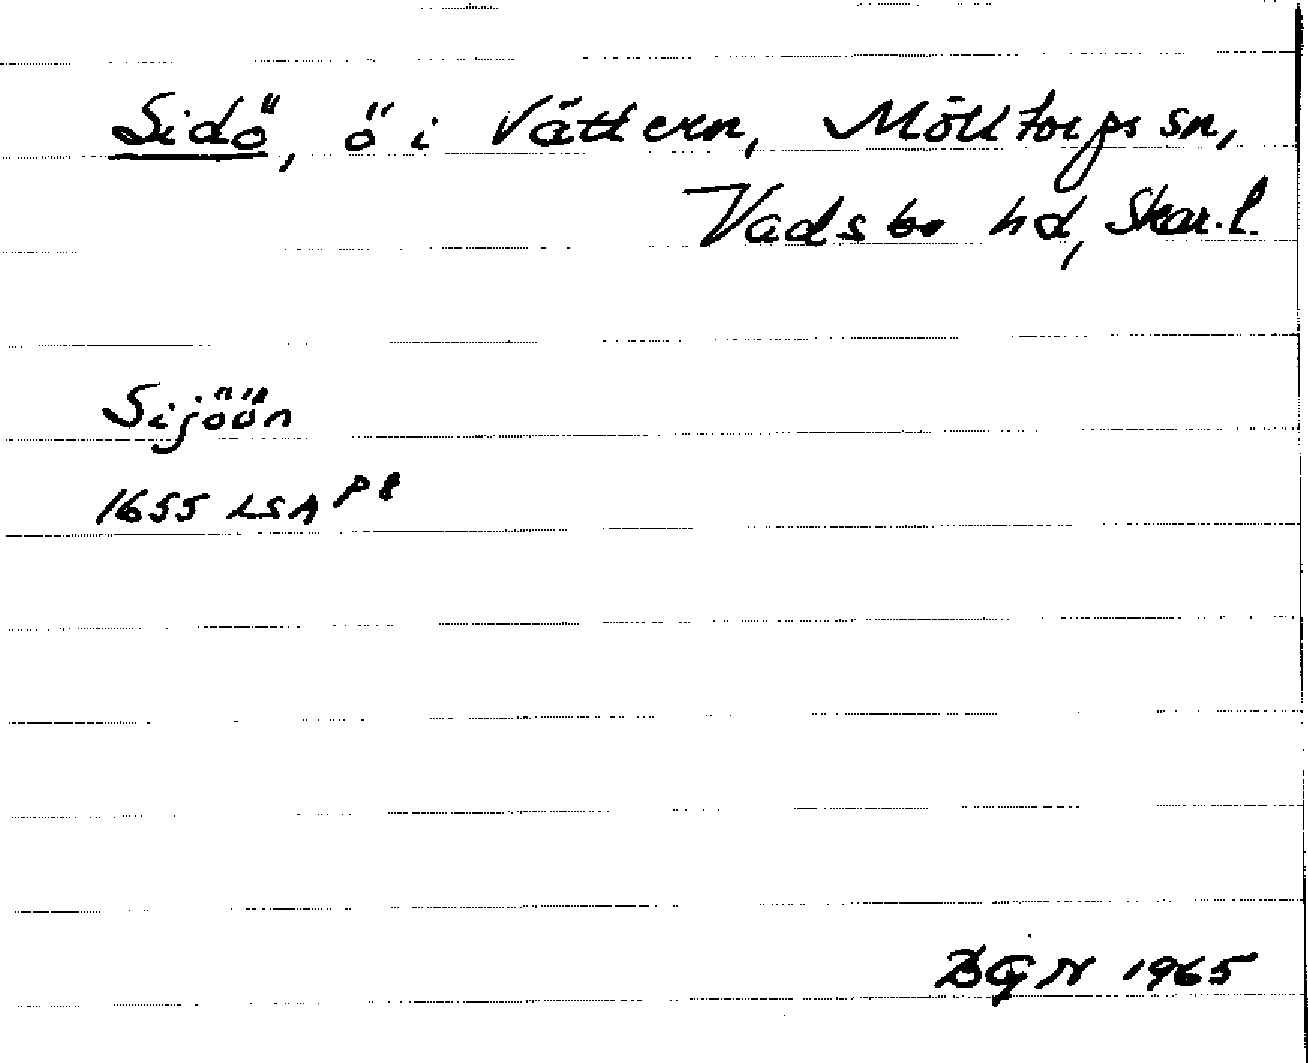 Sidö, ö i Vättern, Mölltorps sn,
Vadsbo hd, Skar.l.
Sijöön
1655 LSA P8
BGN 1965